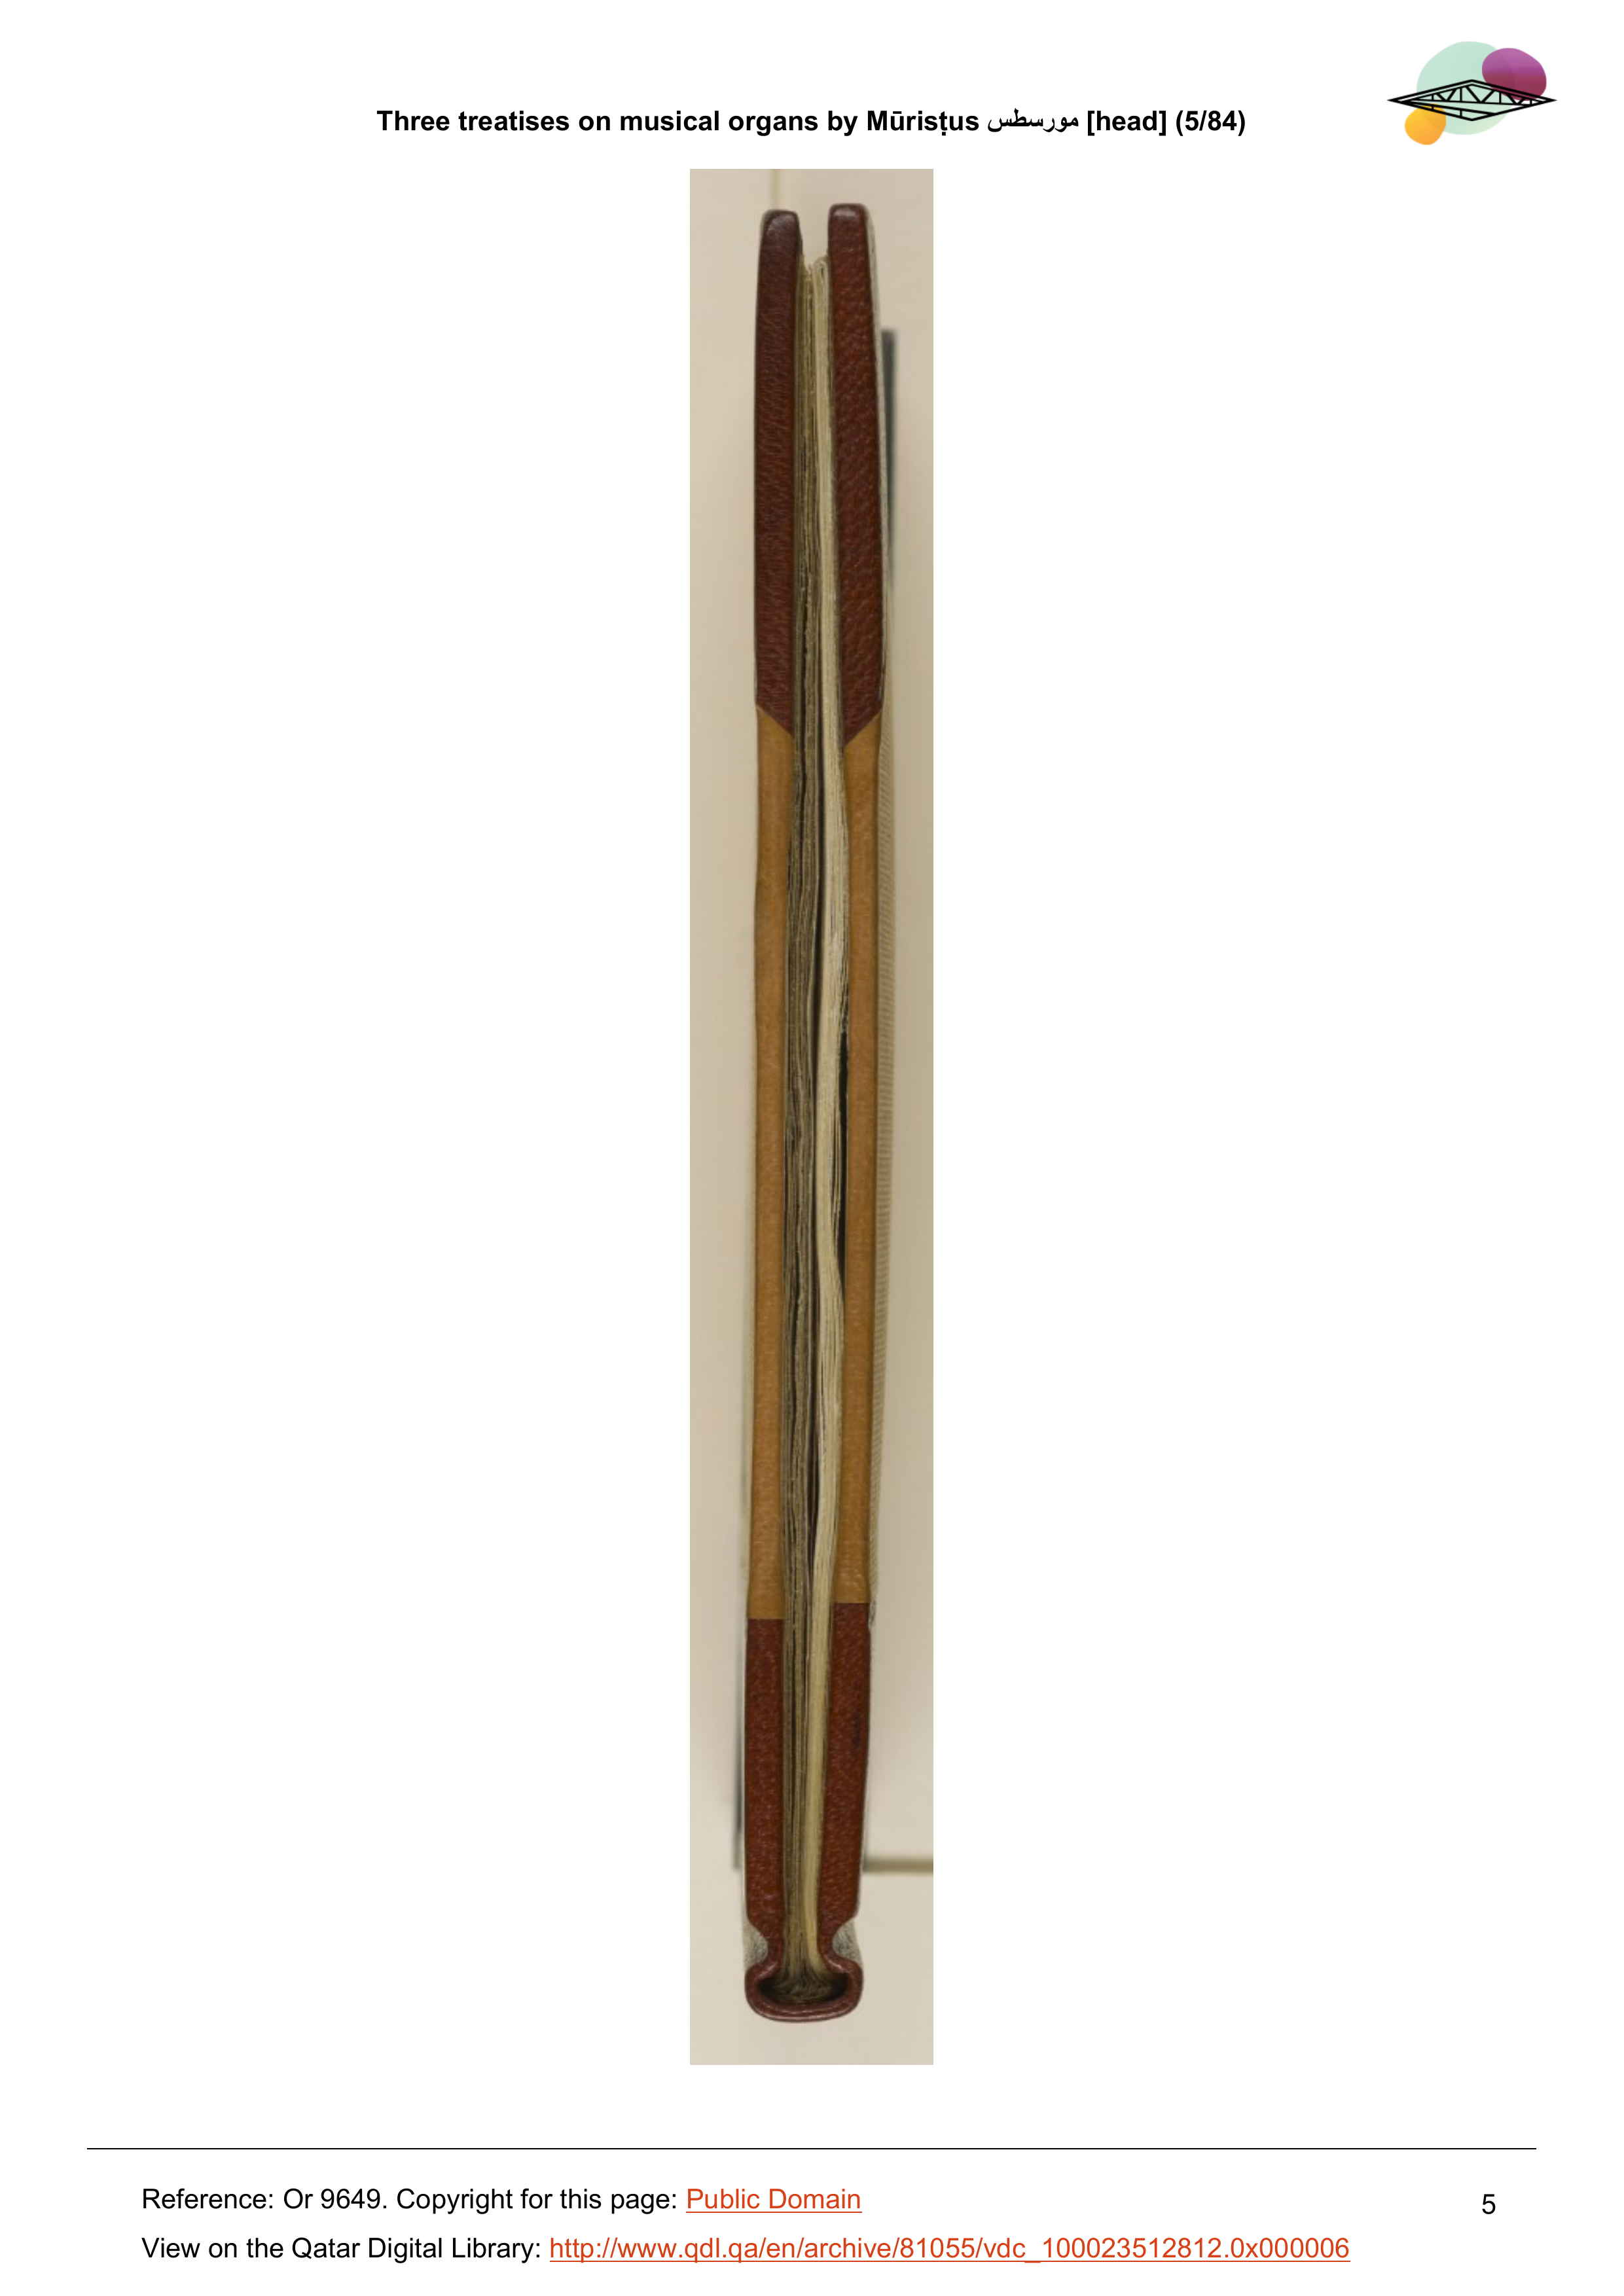 Three treatises on musical organs by Mūrisṭus مورسطس [head] (5/84)
Reference: Or 9649. Copyright for this page: Public Domain
5
View on the Qatar Digital Library: http://www.qdl.qa/en/archive/81055/vdc_100023512812.0x000006